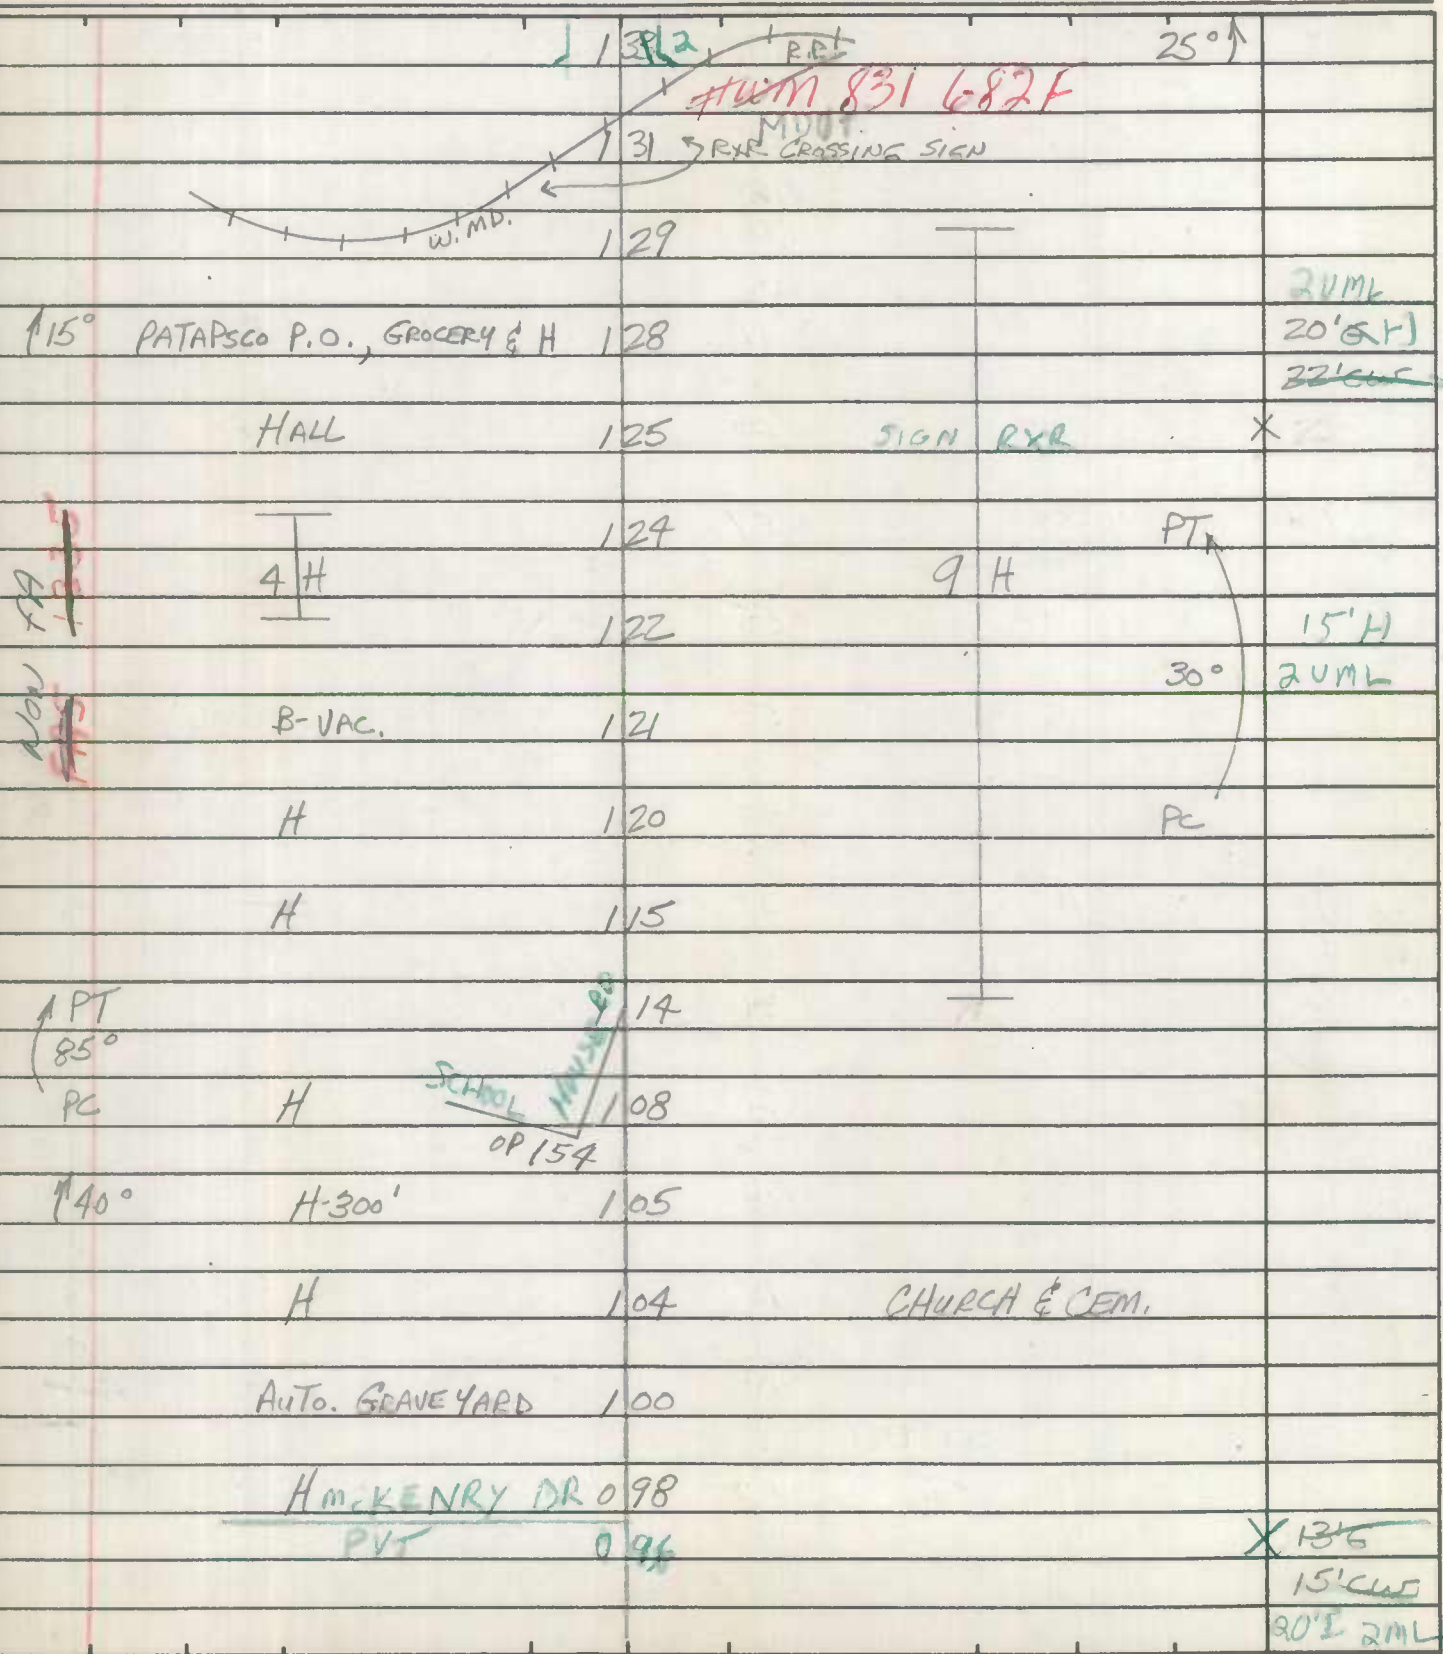 R.R. 25°
831 682F
MDOT
1 31 RXR CROSSING SIGN
W. MD. 1 29
2UML
15° PATAPSCO P.O., GROCERY & H 1 28 20'
22'
HALL 1 25 SIGN RXR X
1 24 PT
4 H 9 H
NON FA
1 22 15'H
30° 2UML
FAS
B-VAC. 1 21
H 1 20 PC
H 1 15
PT 1 14
85°
PC H SCHOOL HOUSE RD 1 08
OP 154
40° H-300' 1 05
H 1 04 CHURCH & CEM.
AUTO. GRAVEYARD 1 00
H McKENRY DR 0 98
PVT 0 96 X 13'G
15'
20'I 2ML